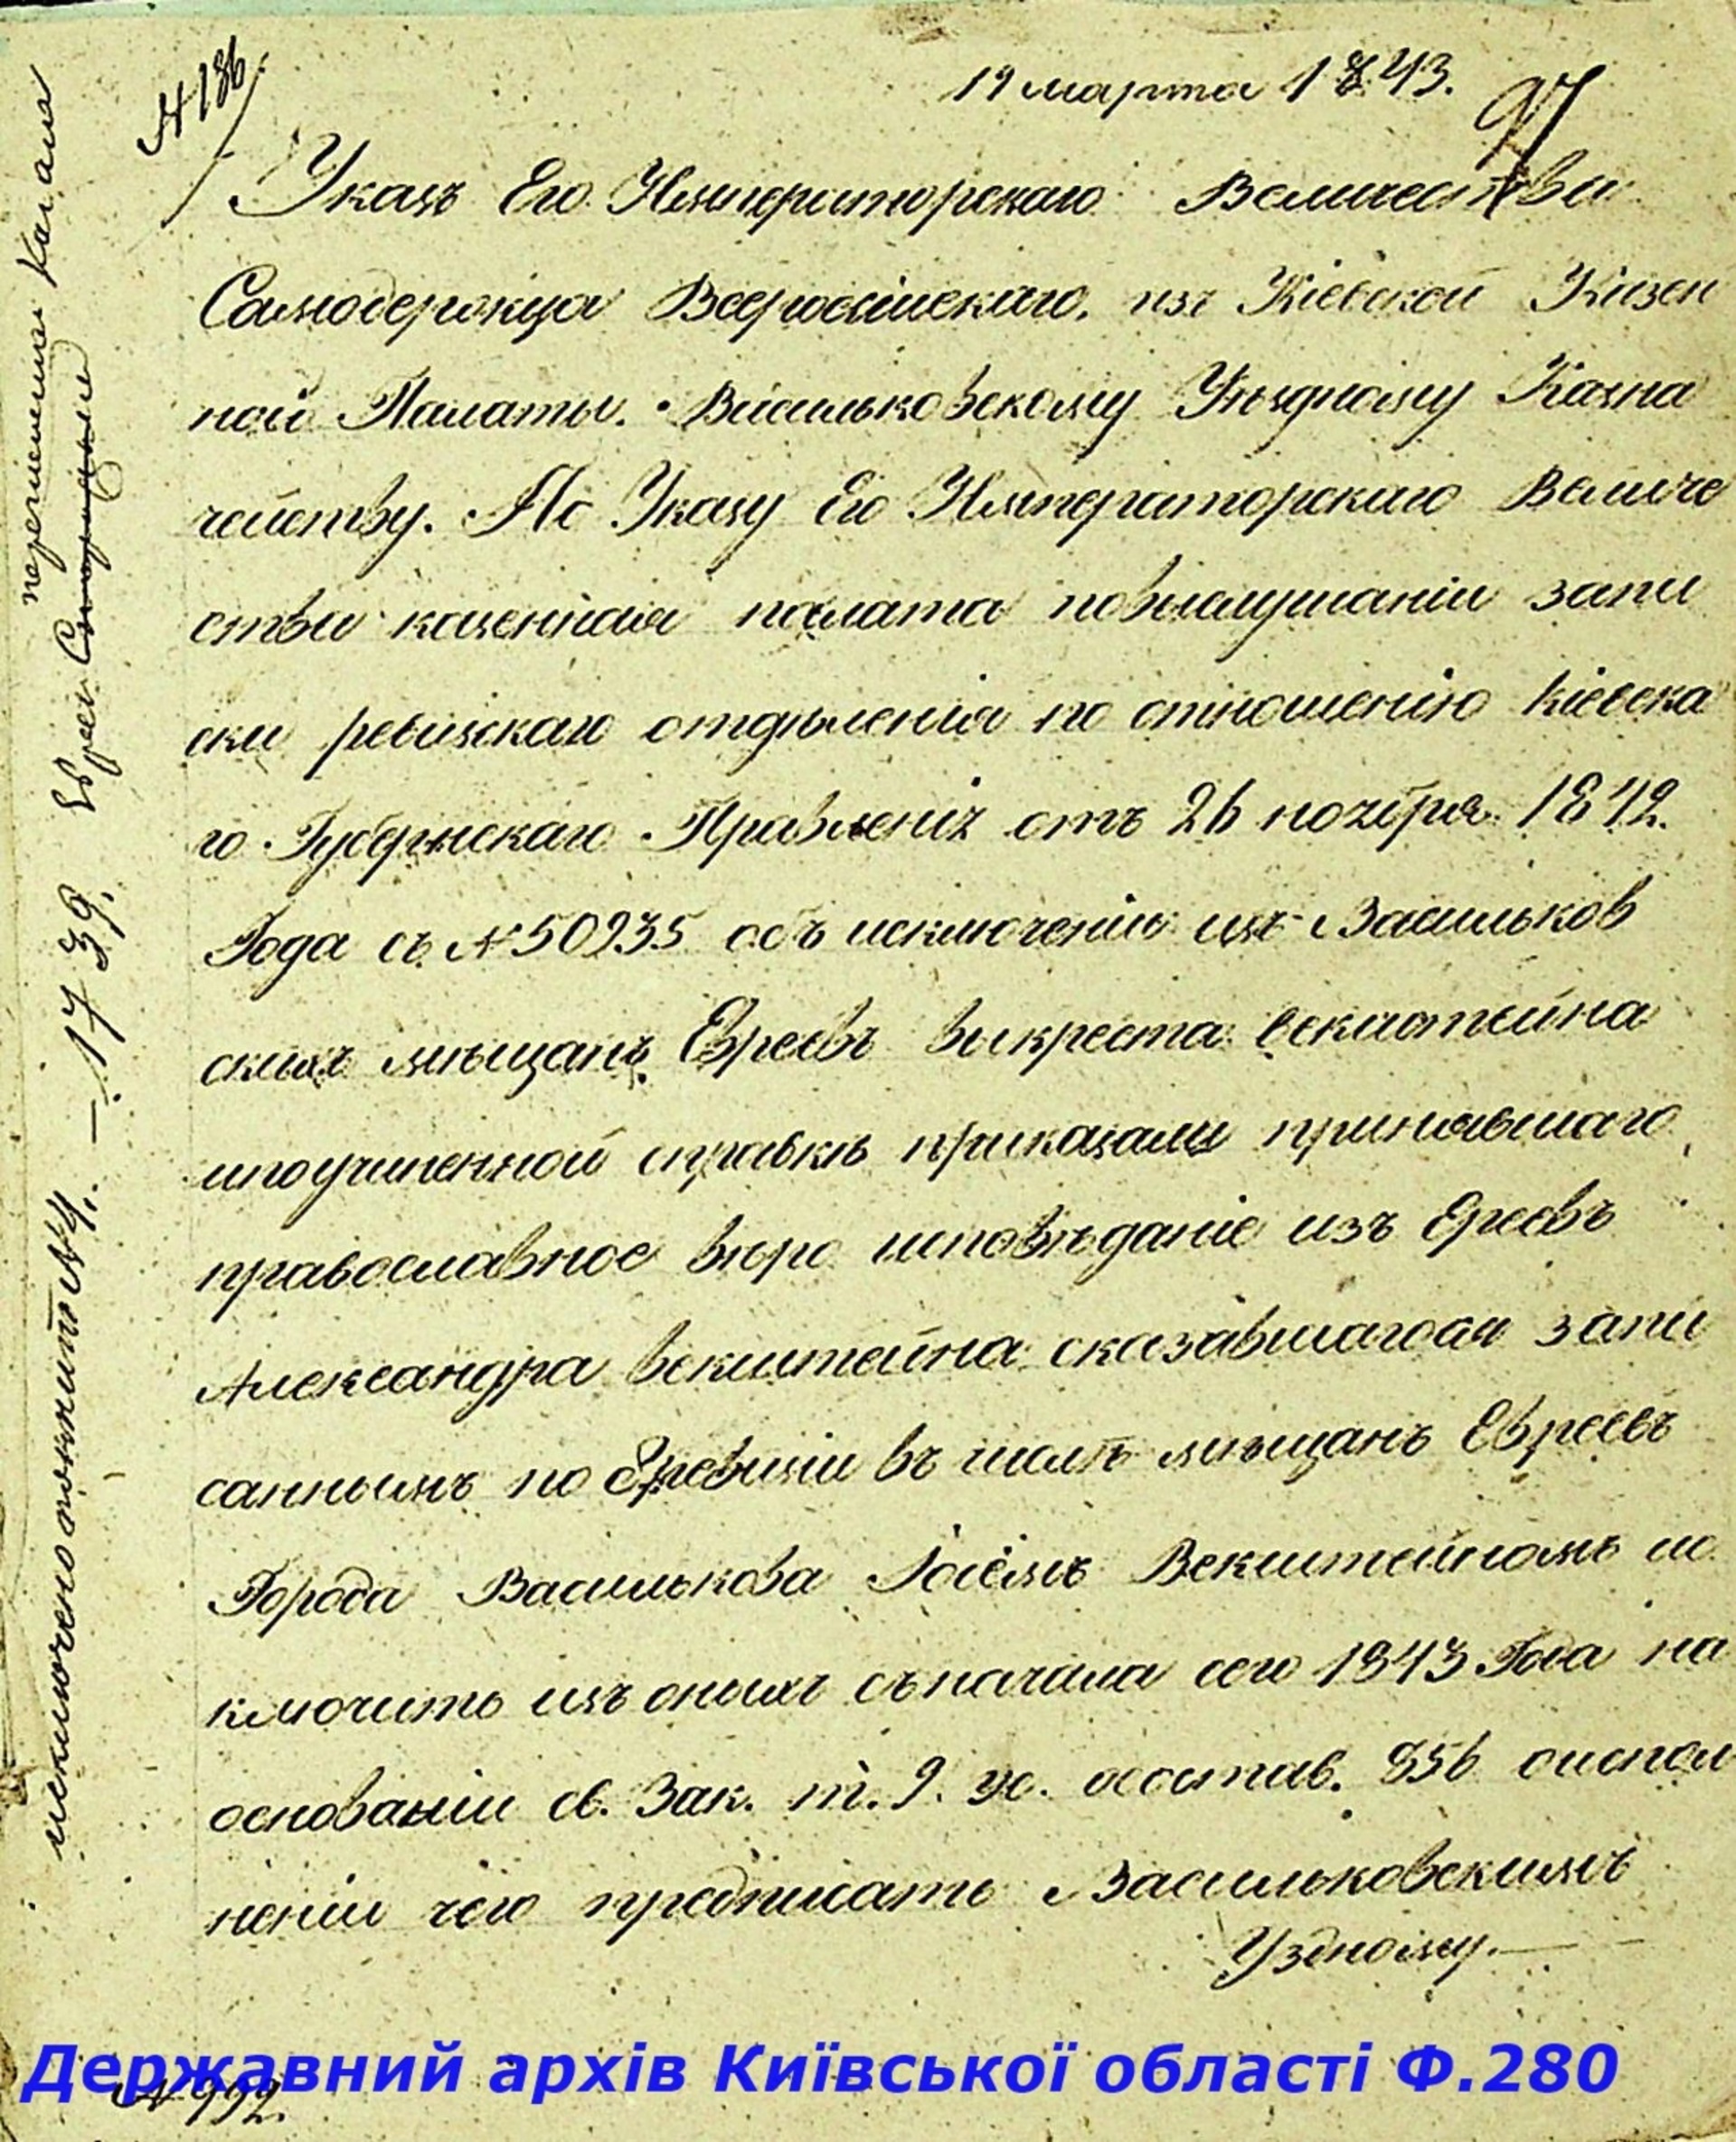 № 186
19 марта 1843.
97
Указъ Его Императорскаго Величества
Самодержца Всероссійскаго, изъ Кіевской Казен
ной Палаты. Васильковскому Уѣздному Казна
чейству. По Указу Его Императорскаго Величе
ства казенная палата повыслушаніи запи
ски ревизскаго отдѣленія по отношенію Кіевска
го Губернскаго Правленія отъ 26 ноября 1842.
Года съ № 50935 объ исключеніи изъ Васильков
скихъ мѣщанъ Евреевъ выкреста Векштейна
ипоучиненной справкѣ приказали принявшаго
православное вѣро исповѣданіе изъ Ереевъ
Александра Векштейна сказавшагося запи
саннымъ по ревизіи въ числѣ мѣщанъ Евреевъ
Города Василькова Іосіемъ Векштейномъ ис
ключить изъ оныхъ съ начала сего 1843 Года на
основаніи св. Зак. т. 9. о состав. 856 оиспол
неніи чего предписать Васильковскимъ
Узному.
исключено по книгѣ № 4. — 1739. Евреи
перемѣненна
№ 992.
Державний архів Київської області Ф.280